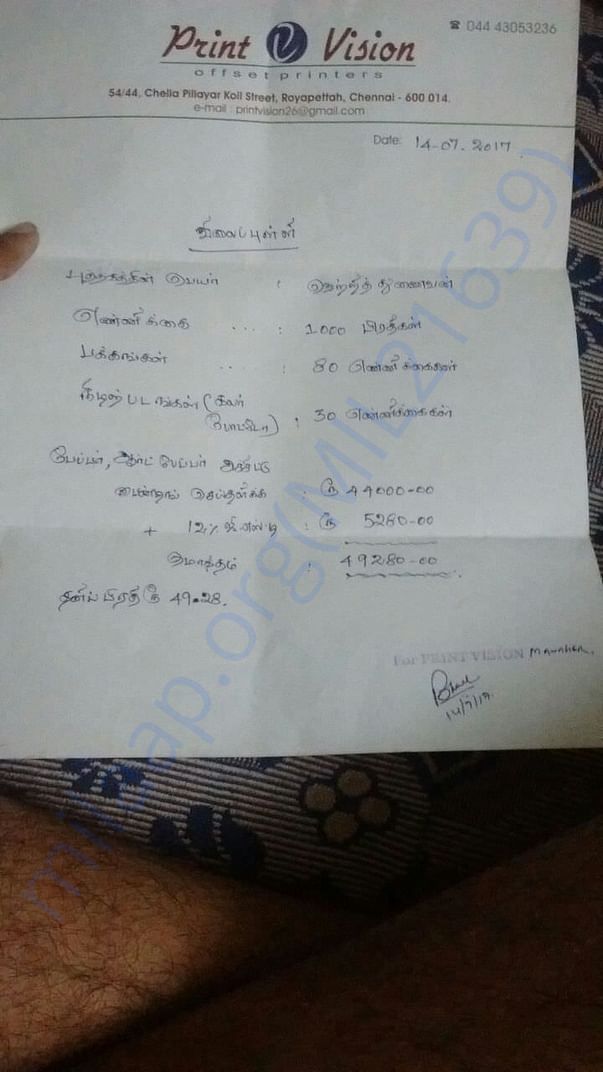 ☎ 044 43053236
Print Vision
offset printers
54/44, Chella Pillayar Koil Street, Royapettah, Chennai - 600 014.
e-mail : printvision26@gmail.com
Date: 14-07-2017.
விலைப்புள்ளி
புத்தகத்தின் பெயர் : வெற்றித் துணைவன்
எண்ணிக்கை ... : 1000 பிரதிகள்
பக்கங்கள் .... : 80 எண்ணிக்கைகள்
நிழற் படங்கள் (கலர்
போட்டோ) : 30 எண்ணிக்கைகள்
பேப்பர், ஆர்ட் பேப்பர் அச்சிட்டு
பைண்டிங் செய்தளிக்க : ரூ 44000-00
+ 12% ஜிஎஸ்டி : ரூ 5280-00
மொத்தம் : 49280-00
தனிப் பிரதி ரூ 49.28.
For PRINT VISION MANAGER.
14/7/17
milaap.org(MIL21639)